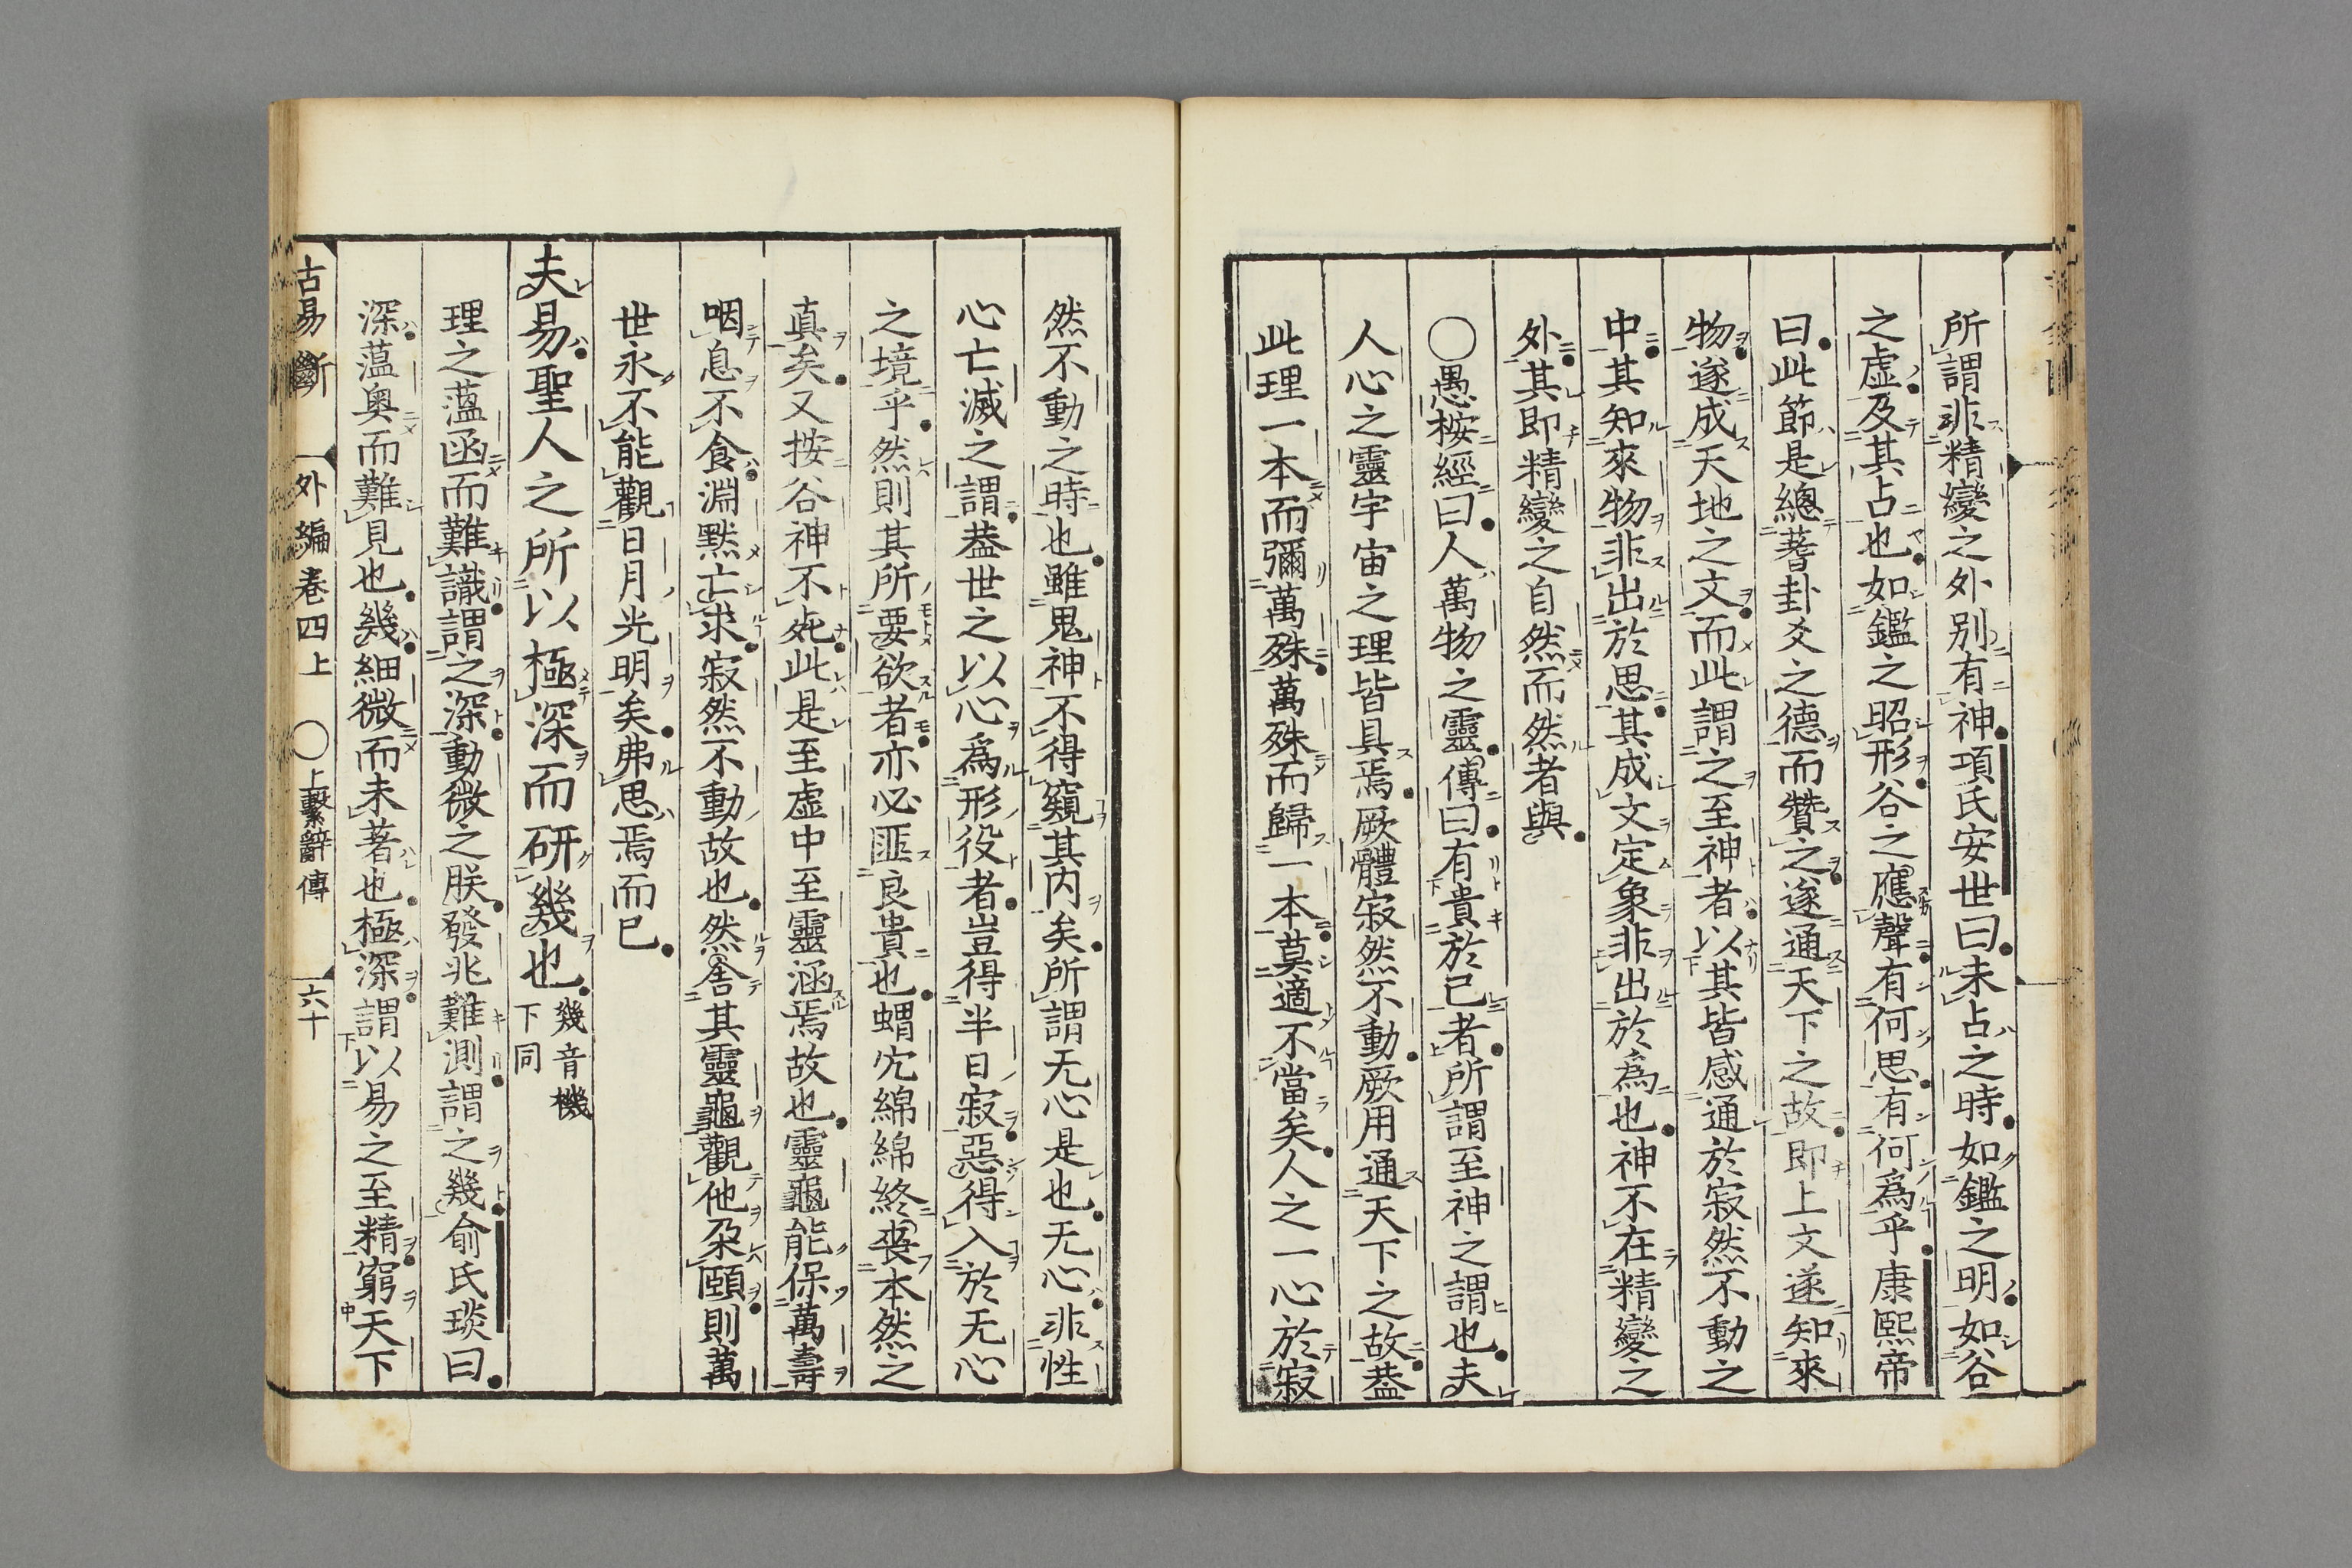 所謂非精變之外別有神項氏安世曰未占之時如鑑之明如谷
之虛及其占也如鑑之昭形谷之應聲有何思有何爲乎康熙帝
曰此節是總蓍卦爻之德而贊之遂通天下之故即上文遂知來
物遂成天地之文而此謂之至神者以其皆感通於寂然不動之
中其知來物非出於思其成文定象非出於為也神不在精變之
外其即精變之自然而然者與
○愚按經曰人萬物之靈傳曰有貴於已者所謂至神之謂也夫
人心之靈宇宙之理皆具焉厥體寂然不動厥用通天下之故葢
此理一本而彌萬殊萬殊而歸一本莫適不當矣人之一心於寂
然不動之時也雖鬼神不得窺其内矣所謂无心是也无心非性
心亡滅之謂葢世之以心爲形役者豈得半日寂惡得入於无心
之境乎然則其所要欲者亦必匪良貴也蝟宂綿綿終喪本然之
真矣又按谷神不死此是至虛中至靈涵焉故也靈龜能保萬壽
咽息不食淵黙亡求寂然不動故也然舍其靈龜觀他朶頤則萬
世永不能觀日月光明矣弗思焉而已
夫易聖人之所以極深而研幾也幾音機下同
理之薀函而難識謂之深動微之朕發兆難測謂之幾俞氏琰曰
深薀奥而難見也幾細微而未著也極深謂以易之至精窮天下
古易斷　外編卷四上　○上繫辭傳　六十